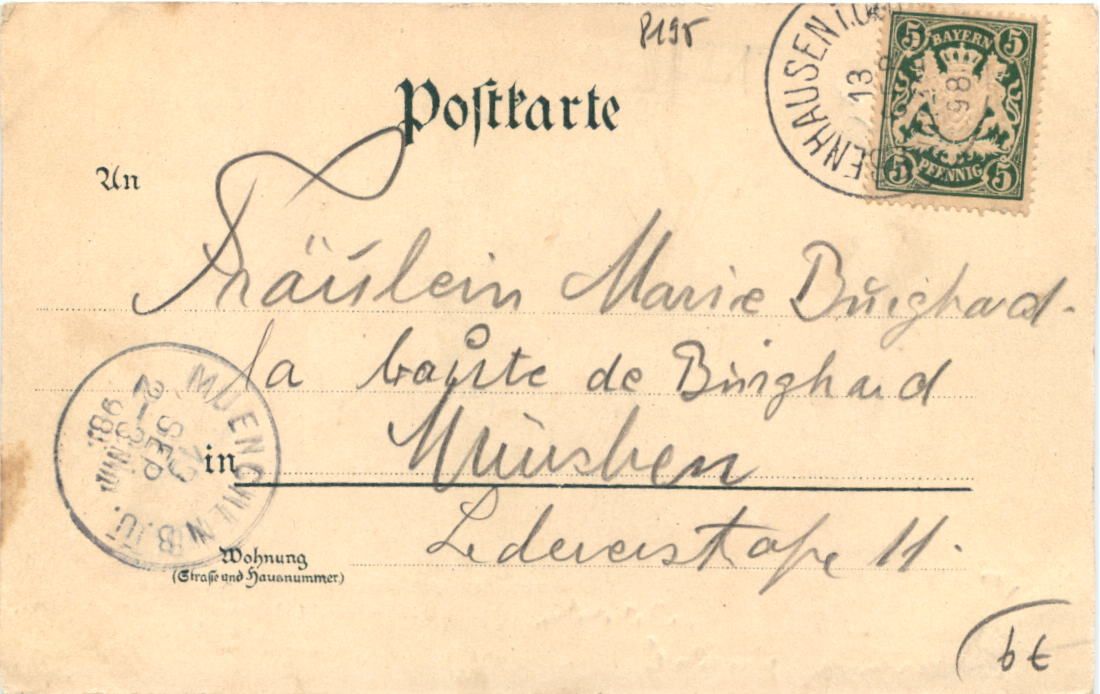 8195
Postkarte
ENHAUSEN i.
13
8
98
5 BAYERN 5
5 PFENNIG 5
An
Fräulein Marie Burghard-
la de Burghard
MUENCHEN B.
SEP
in München
Wohnung
(Straße und Hausnummer)
Ledererstraße 11.
6 €